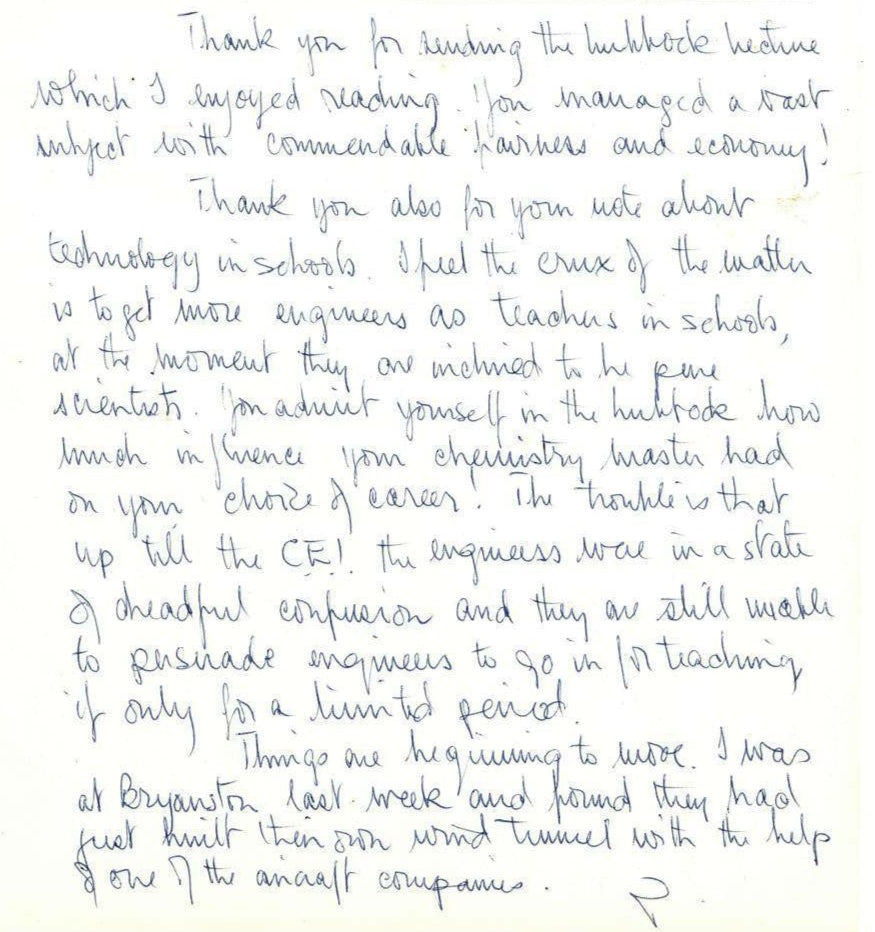 Thank you for sending the Lubbock Lecture
which I enjoyed reading. You managed a vast
subject with commendable fairness and economy!
Thank you also for your note about
technology in schools. I feel the crux of the matter
is to get more engineers as teachers in schools,
at the moment they are inclined to be pure
scientists. You admit yourself in the Lubbock how
much influence your chemistry master had
on your choice of career! The trouble is that
up till the CEI. the engineers were in a state
of dreadful confusion and they are still unable
to persuade engineers to go in for teaching
if only for a limited period.
Things are beginning to move. I was
at Bryanston last week and found they had
just built their own wind tunnel with the help
of one of the aircraft companies.
P